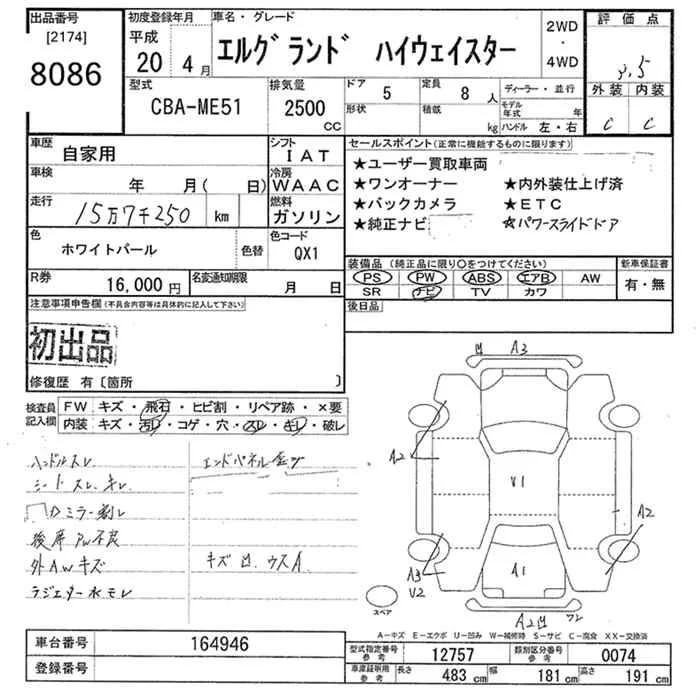 出品番号 初度登録年月 車名・グレード 2WD・4WD 評価点
[2174] 平成 エルグランド ハイウェイスター 3.5
8086 20 4月 外装 内装
型式 排気量 ドア 定員 ディーラー・並行 C C
CBA-ME51 2500 CC 5 8人 モデル年式 年
形状 積載 kg ハンドル 左・右
車歴 自家用 シフト IAT セールスポイント(正常に機能するものに限ります)
車検 年 月( 日) 冷房 WAAC ★ユーザー買取車両
★ワンオーナー ★内外装仕上げ済
走行 15万7千250 km 燃料 ガソリン ★バックカメラ ★ETC
★純正ナビ ☆パワースライドドア
色 ホワイトパール 色替 色コード QX1
装備品(純正品に限り○をつけてください) 新車保証書
PS PW ABS エアB AW 有・無
SR ナビ TV カワ
R券 16,000円 名変通知期限 月 日
後日品
注意事項申告欄(不具合内容等は具体的に記入して下さい)
初出品
修復歴 有〔箇所 〕
検査員記入欄 FW キズ・飛石・ヒビ割・リペア跡・×要
内装 キズ・汚レ・コゲ・穴・スレ・キレ・破レ
ハンドルスレ エンドパネル
シートスレ、キレ
Dミラー割レ
後席PW不良
外AWキズ キズ凹、ウスA
ラジエター水モレ
凹 A3
A2
V1
A2
A3
V2
A1
スペア A2凹 ワレ
A-キズ E-エクボ U-凹み W-補修跡 S-サビ C-腐食 XX-交換済
車台番号 164946 型式指定番号 参考 12757 類別区分番号 参考 0074
登録番号 車庫証明用 参考 長さ 483 cm 幅 181 cm 高さ 191 cm